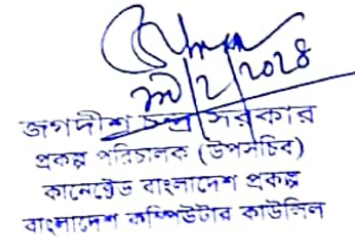 ২০২৪
জগদীশ চন্দ্র সরকার
প্রকল্প পরিচালক (উপসচিব)
কানেক্টেড বাংলাদেশ প্রকল্প
বাংলাদেশ কম্পিউটার কাউন্সিল